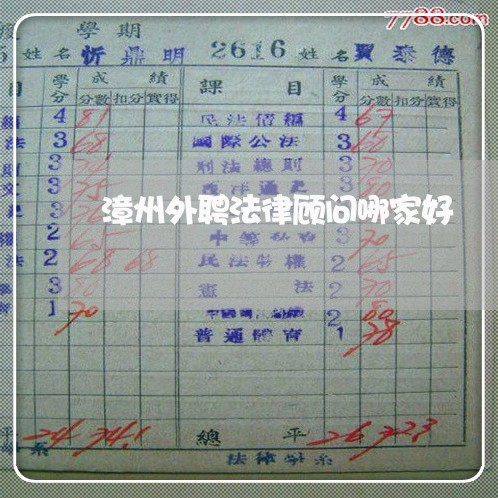 7788.com
學期
姓名 忻鼎明 2616 姓名 賈泰德
目 學分 成績 課目 學分 成績
分數 扣分 實得 分數 扣分 實得
4 81 民法債編 4 67
法 3 68 國際公法 3 60
3 刑法總則 3 70
3 75 西洋通史 3 80
漳州外聘法律顾问哪家好
2 65 3 70
法 2 68 68 民法物權 2 65
3 80 憲法 2 70
1 70 2 80
普通體育 1 78
24 74.1 總平 26 72.3
系 法律學系